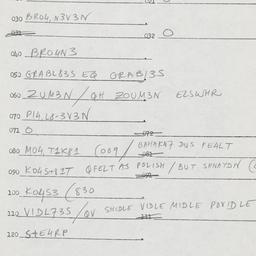 031
030 BRO4, N3V3N
031 032 O
040 BRO4N3
050 GRABL83S EQ GRAB/3S
060 ZUM3N / QH ZOUM3N ELSWHR
070 P14, L8-3V3N
071 O 072
080 MO4, T1KP1 (009 / BAHAKA7 DUS FEALT
081
090 KO4S+11T QFELT AS POLISH / BUT SHNAYDN (
091
100 KO4S3 (830
110 VIDL73S / QV SHIDLE VIDLE MIDLE POVIDLE
111
120 S+E4RP